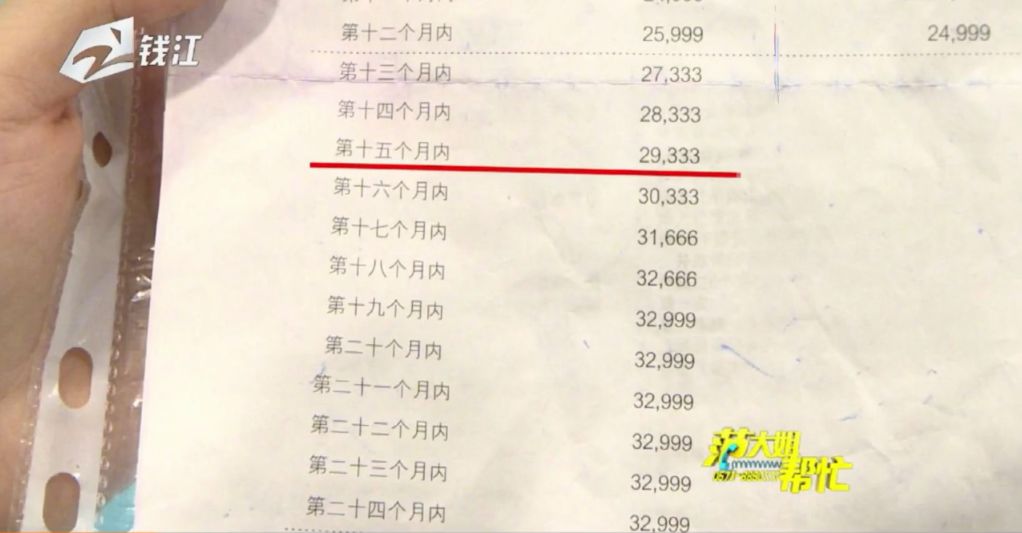 钱江
第十二个月内 25,999 24,999
第十三个月内 27,333
第十四个月内 28,333
第十五个月内 29,333
第十六个月内 30,333
第十七个月内 31,666
第十八个月内 32,666
第十九个月内 32,999
第二十个月内 32,999
第二十一个月内 32,999
第二十二个月内 32,999
第二十三个月内 32,999
第二十四个月内 32,999
范大姐
帮忙